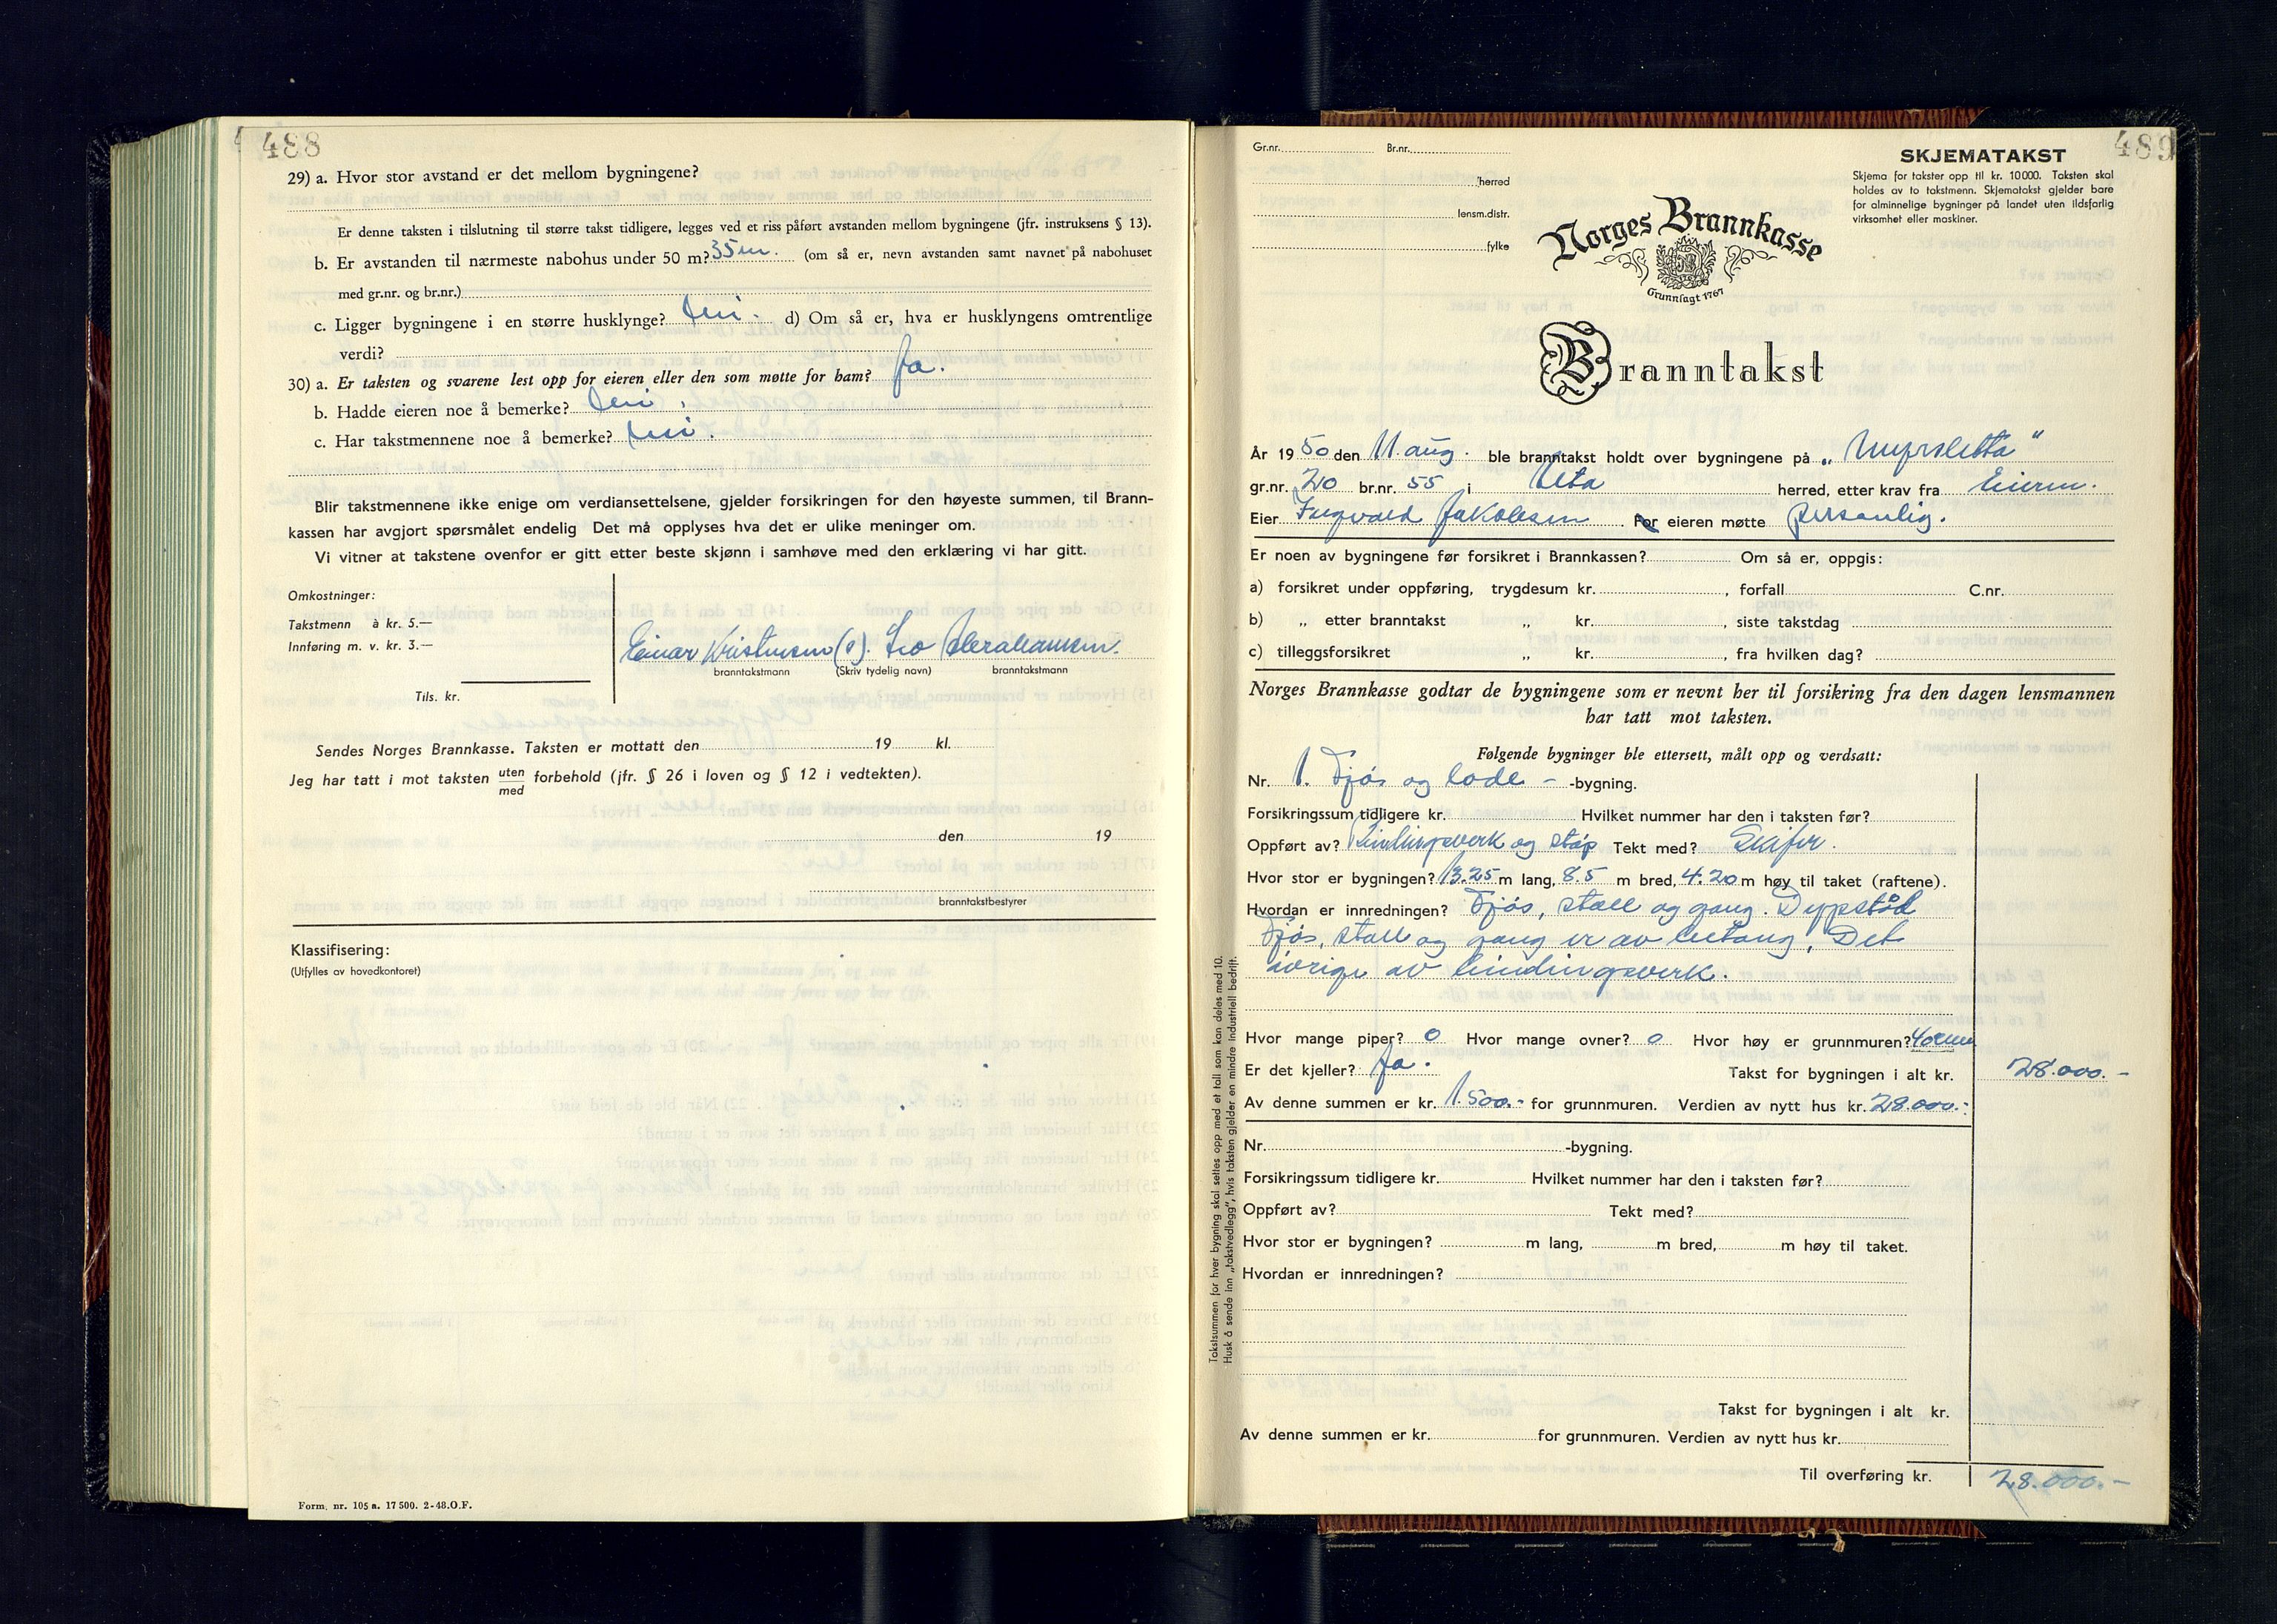 488
29) a. Hvor stor avstand er det mellom bygningene?
Er denne taksten i tilslutning til større takst tidligere, legges ved et riss påført avstanden mellom bygningene (jfr. instruksens § 13).
b. Er avstanden til nærmeste nabohus under 50 m? 35 m. (om så er, nevn avstanden samt navnet på nabohuset
med gr.nr. og br.nr.)
c. Ligger bygningene i en større husklynge? Nei. d) Om så er, hva er husklyngens omtrentlige
verdi?
30) a. Er taksten og svarene lest opp for eieren eller den som møtte for ham? Ja.
b. Hadde eieren noe å bemerke? Nei.
c. Har takstmennene noe å bemerke? Nei.
Blir takstmennene ikke enige om verdiansettelsene, gjelder forsikringen for den høyeste summen, til Brann-
kassen har avgjort spørsmålet endelig Det må opplyses hva det er ulike meninger om.
Vi vitner at takstene ovenfor er gitt etter beste skjønn i samhøve med den erklæring vi har gitt.
Omkostninger:
Takstmenn à kr. 5.—
Innføring m. v. kr. 3.—
Tils. kr.
Einar Kristensen (s). Leo Abrahamsen.
branntakstmann (Skriv tydelig navn) branntakstmann
Sendes Norges Brannkasse. Taksten er mottatt den 19 kl.
Jeg har tatt i mot taksten uten
med forbehold (jfr. § 26 i loven og § 12 i vedtekten).
den 19
branntakstbestyrer
Klassifisering:
(Utfylles av hovedkontoret)
Form. nr. 105 a. 17 500. 2-48. O.F.
489
Gr.nr. Br.nr.
herred
lensm.distr.
fylke
SKJEMATAKST
Skjema for takster opp til kr. 10000. Taksten skal
holdes av to takstmenn. Skjematakst gjelder bare
for alminnelige bygninger på landet uten ildsfarlig
virksomhet eller maskiner.
Norges Brannkasse
Grunnlagt 1767
Branntakst
År 19 50 den 11. aug. ble branntakst holdt over bygningene på „Myrsletta"
gr.nr. 20 br.nr. 55 i herred, etter krav fra Eieren.
Eier Ingvald Jakobsen For eieren møtte personlig.
Er noen av bygningene før forsikret i Brannkassen? Om så er, oppgis:
a) forsikret under oppføring, trygdesum kr. , forfall C.nr.
b) „ etter branntakst „ kr. , siste takstdag
c) tilleggsforsikret „ kr. , fra hvilken dag?
Norges Brannkasse godtar de bygningene som er nevnt her til forsikring fra den dagen lensmannen
har tatt mot taksten.
Følgende bygninger ble ettersett, målt opp og verdsatt:
Nr. 1. Fjøs og lade - -bygning.
Forsikringssum tidligere kr. Hvilket nummer har den i taksten før?
Oppført av? Bindingsverk og støp Tekt med? Skifer.
Hvor stor er bygningen? 13.25 m lang, 8.5 m bred, 4.20 m høy til taket (raftene).
Hvordan er innredningen? Fjøs, stall og gang. Dypstøl
Fjøs, stall og gang er av betong. Det
øvrige av bindingsverk.
Hvor mange piper? 0 Hvor mange ovner? 0 Hvor høy er grunnmuren? 40 cm
Er det kjeller? Ja. Takst for bygningen i alt kr. 28.000.-
Av denne summen er kr. 1.500.- for grunnmuren. Verdien av nytt hus kr. 28.000.-
Nr. -bygning.
Forsikringssum tidligere kr. Hvilket nummer har den i taksten før?
Oppført av? Tekt med?
Hvor stor er bygningen? m lang, m bred, m høy til taket.
Hvordan er innredningen?
Takst for bygningen i alt kr.
Av denne summen er kr. for grunnmuren. Verdien av nytt hus kr.
Til overføring kr. 28.000.-
Takstsummen for hver bygning skal settes opp med et tall som kan deles med 10.
Husk å sende inn „takstvedlegg", hvis taksten gjelder en mindre industriell bedrift.